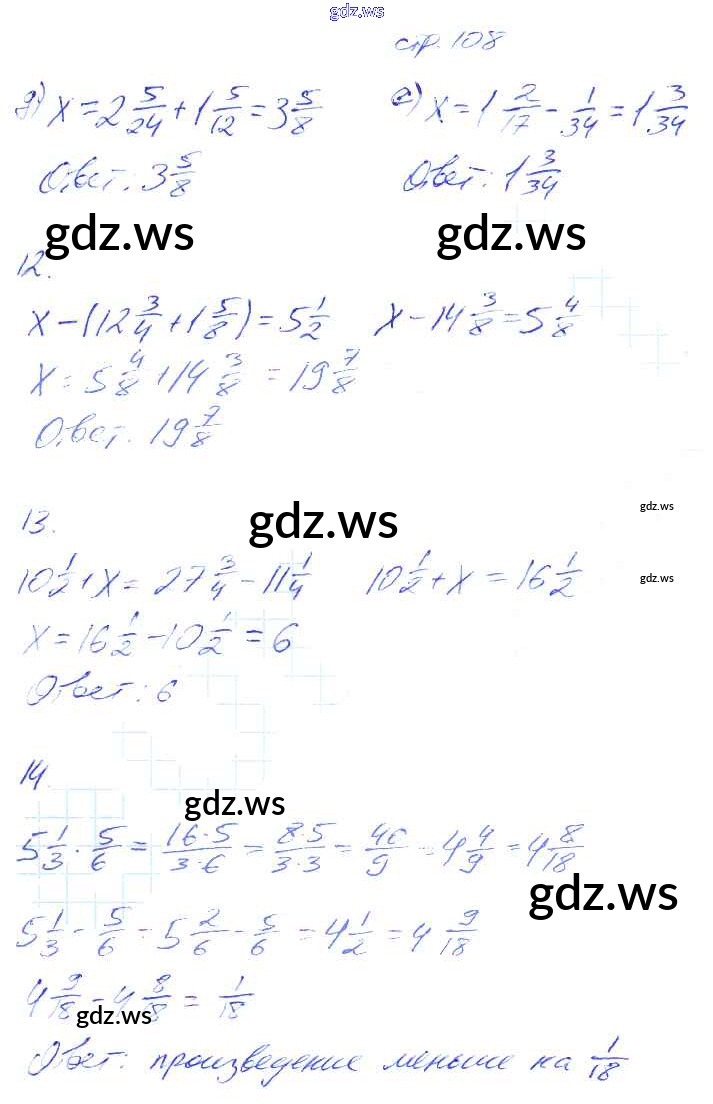 gdz.ws
стр. 108
д) x = 2 5/24 + 1 5/12 = 3 5/8 е) x = 1 2/17 - 1/34 = 1 3/34
Ответ: 3 5/8 Ответ: 1 3/34
gdz.ws gdz.ws
12.
x - (12 3/4 + 1 5/8) = 5 1/2 x - 14 3/8 = 5 4/8
x = 5 4/8 + 14 3/8 = 19 7/8
Ответ. 19 7/8
13. gdz.ws gdz.ws
10 1/2 + x = 27 3/4 - 11 1/4 10 1/2 + x = 16 1/2 gdz.ws
x = 16 1/2 - 10 1/2 = 6
Ответ: 6
14.
gdz.ws
5 1/3 · 5/6 = 16·5/3·6 = 8·5/3·3 = 40/9 = 4 4/9 = 4 8/18
gdz.ws
5 1/3 - 5/6 = 5 2/6 - 5/6 = 4 1/2 = 4 9/18
4 9/18 - 4 8/18 = 1/18
gdz.ws
Ответ: произведение меньше на 1/18